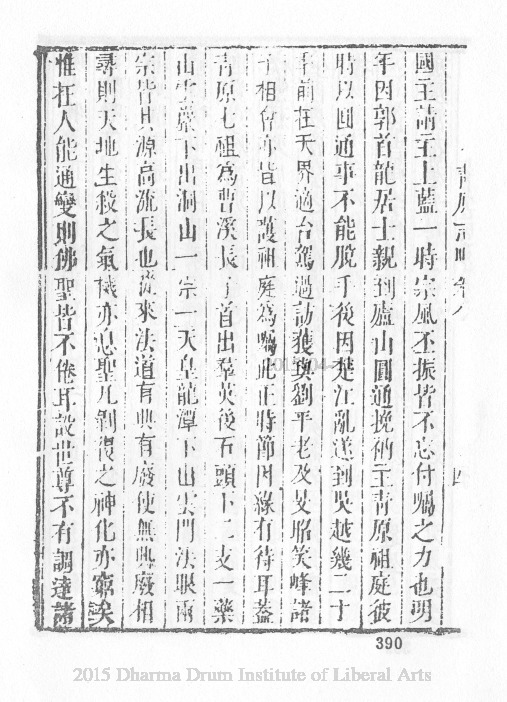 青原志略 卷八
國主請主上藍一時宗風丕振皆不忘付囑之力也明
年因郭首龍居士親到廬山圓通挽衲主青原祖庭彼
時以圓通事不能脫手後因楚江亂遂到吳越幾二十
年前在天界適台駕過訪獲與劉平老及旻昭笑峰諸
相會亦皆以護祖庭為囑此正時節因緣有待耳蓋
青原七祖為曹溪長子首出羣英後石頭下二支一藥
山雲巖下出洞山一宗一天皇龍潭下出雲門法眼兩
宗皆其源高流長也從來法道有興有廢使無興廢相
尋則天地生殺之氣機亦息聖凡剝復之神化亦窮矣
惟在人能通變則佛聖皆不倦耳設世尊不有調達諸
390
2015 Dharma Drum Institute of Liberal Arts